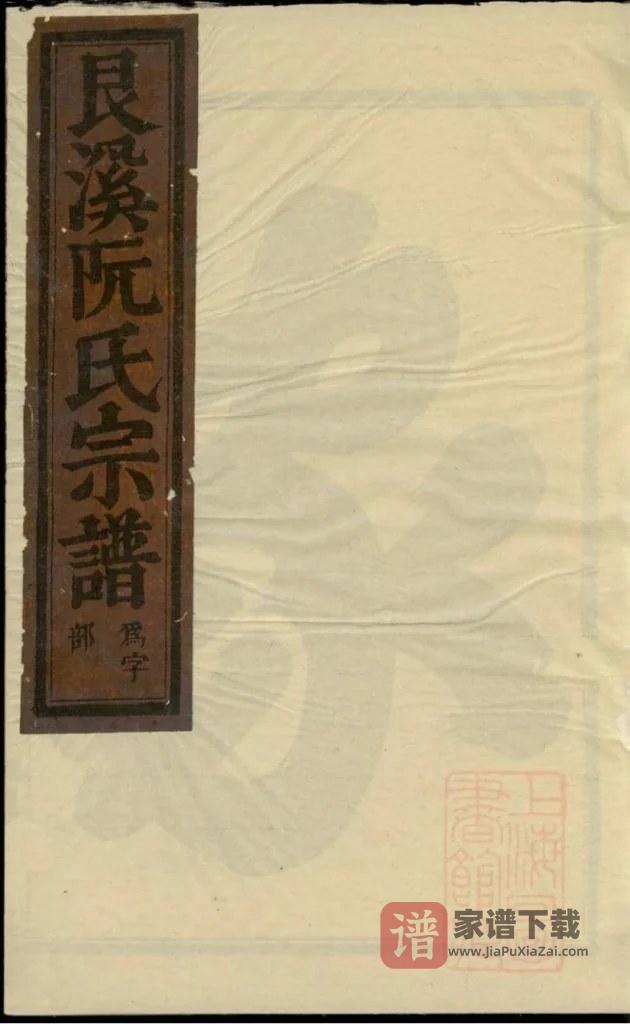 艮溪阮氏宗譜
為字
部
上海
書館
谱
家谱下载
www.JiaPuXiaZai.com